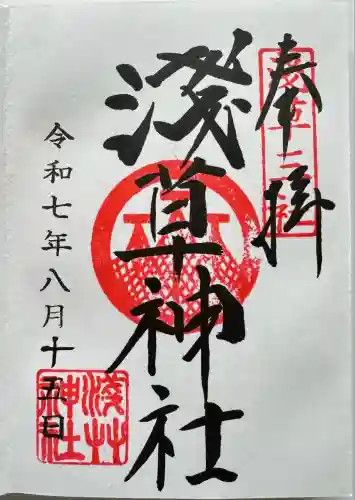 奉拝
淺草神社
令和七年八月十五日
淺草
神社